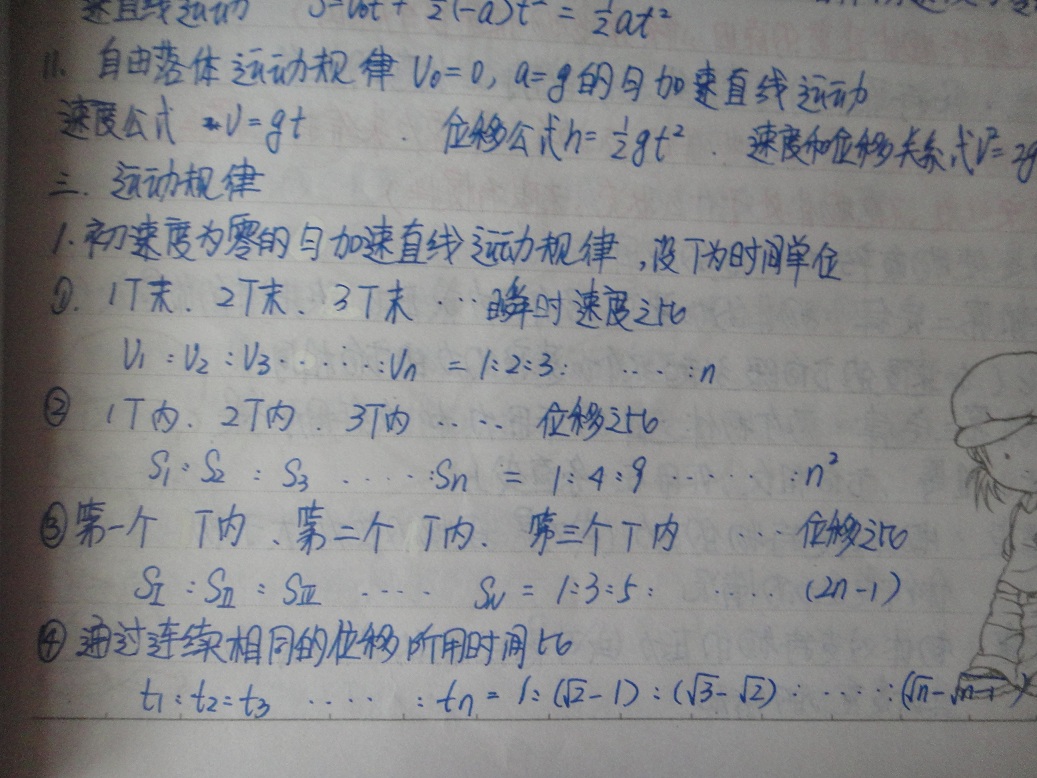 速直线运动 S=V₀t+½(-a)t²=½at²
11. 自由落体运动规律 V₀=0, a=g的匀加速直线运动
速度公式 V=gt . 位移公式h=½gt² . 速度和位移关系式V²=2g
三. 运动规律
1. 初速度为零的匀加速直线运动规律,设T为时间单位
①. 1T末、2T末、3T末 ··· 瞬时速度之比
V₁:V₂:V₃·····:Vn = 1:2:3: ··· :n
② 1T内、2T内、3T内 ···· 位移之比
S₁:S₂:S₃ ·····:Sn = 1:4:9 ···· :n²
③ 第一个T内、第二个T内、第三个T内 ··· 位移之比
SⅠ:SⅡ:SⅢ ···· SN = 1:3:5: ···· (2n-1)
④ 通过连续相同的位移所用时间比
t₁:t₂=t₃ ····:tn = 1:(√2-1):(√3-√2)·····:(√n-√n-1